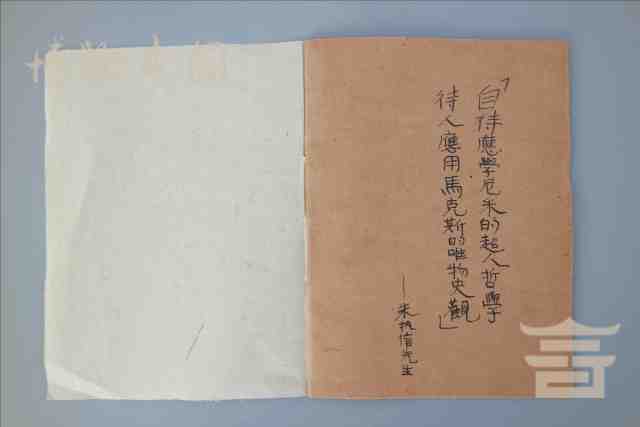 「自待應學尼采的超人哲學
待人應用馬克斯的唯物史觀」
—朱执信先生